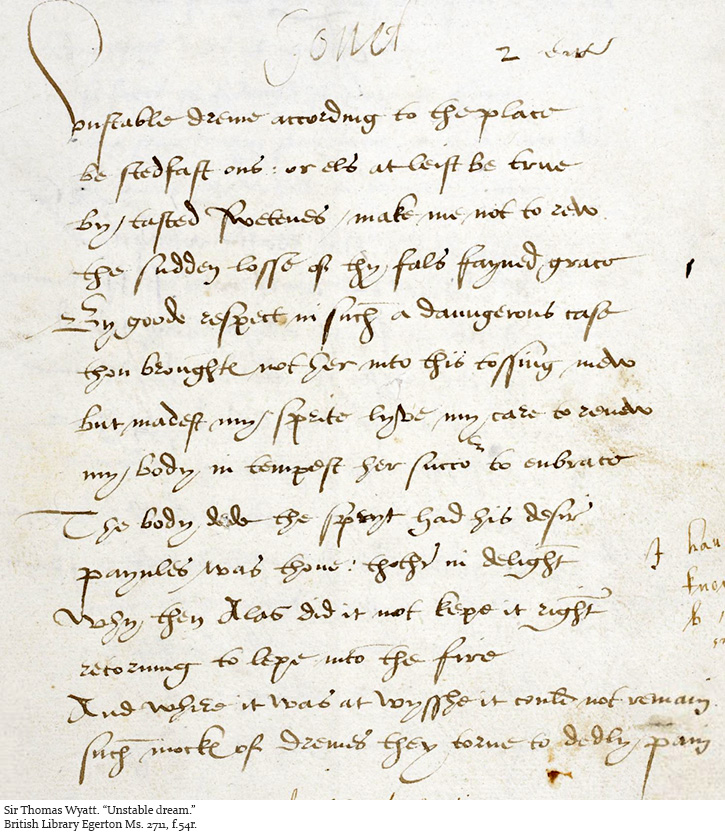 Sonet
2 enter
Vnstable dreme according to the place
be stedfast ons : or els at leist be true
by tasted swetenes / make me not to rew
the sudden losse of thy fals fayned grace
By goode respect in such a daungerous case
thou broughtes not her into this tossing mew
but madest my sprite lyve my care to renew
my body in tempest her succor to enbrace
The body dede the spryt had his desir
paynles was thone : thothr in delight
Why then Alas did it not kepe it right
retorning to lepe into the fire
And where it was at wysshe it could not remain
such mockes of dremes they torne to dedly pain
I hau
know
Sir Thomas Wyatt. “Unstable dream.”
British Library Egerton Ms. 2711, f.54r.